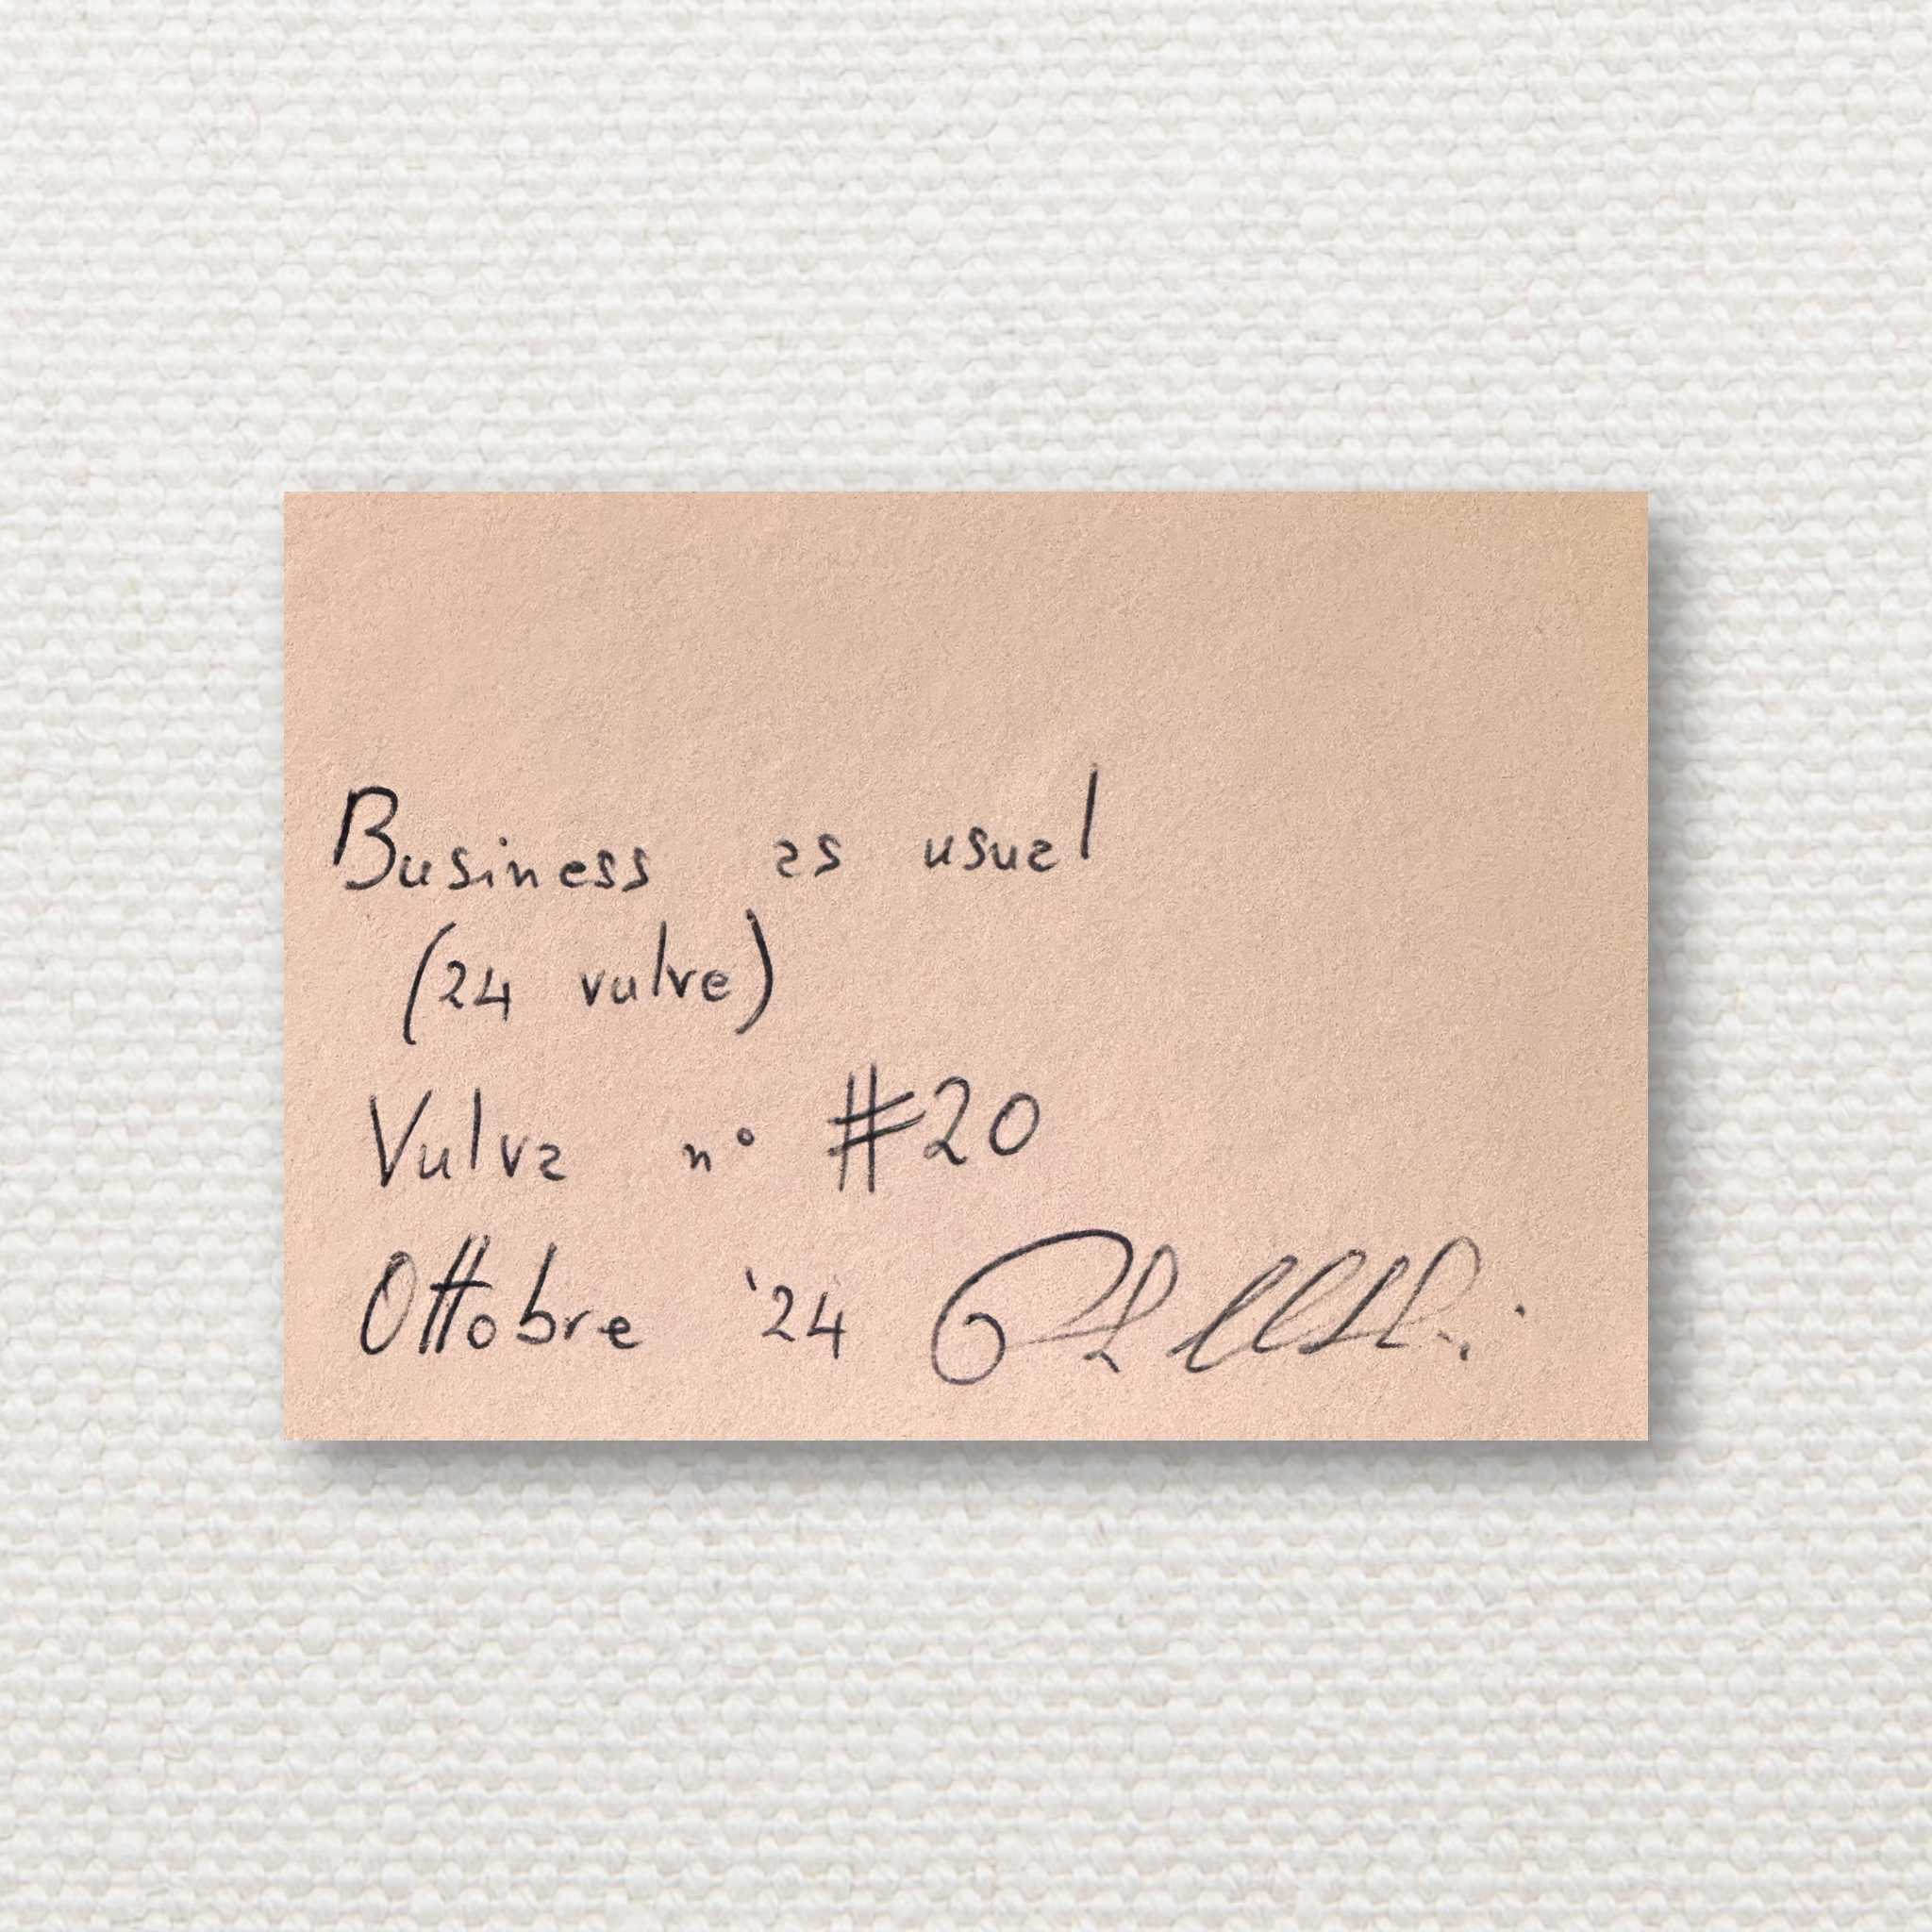 Business as usual
(24 vulve)
Vulva n° #20
Ottobre '24